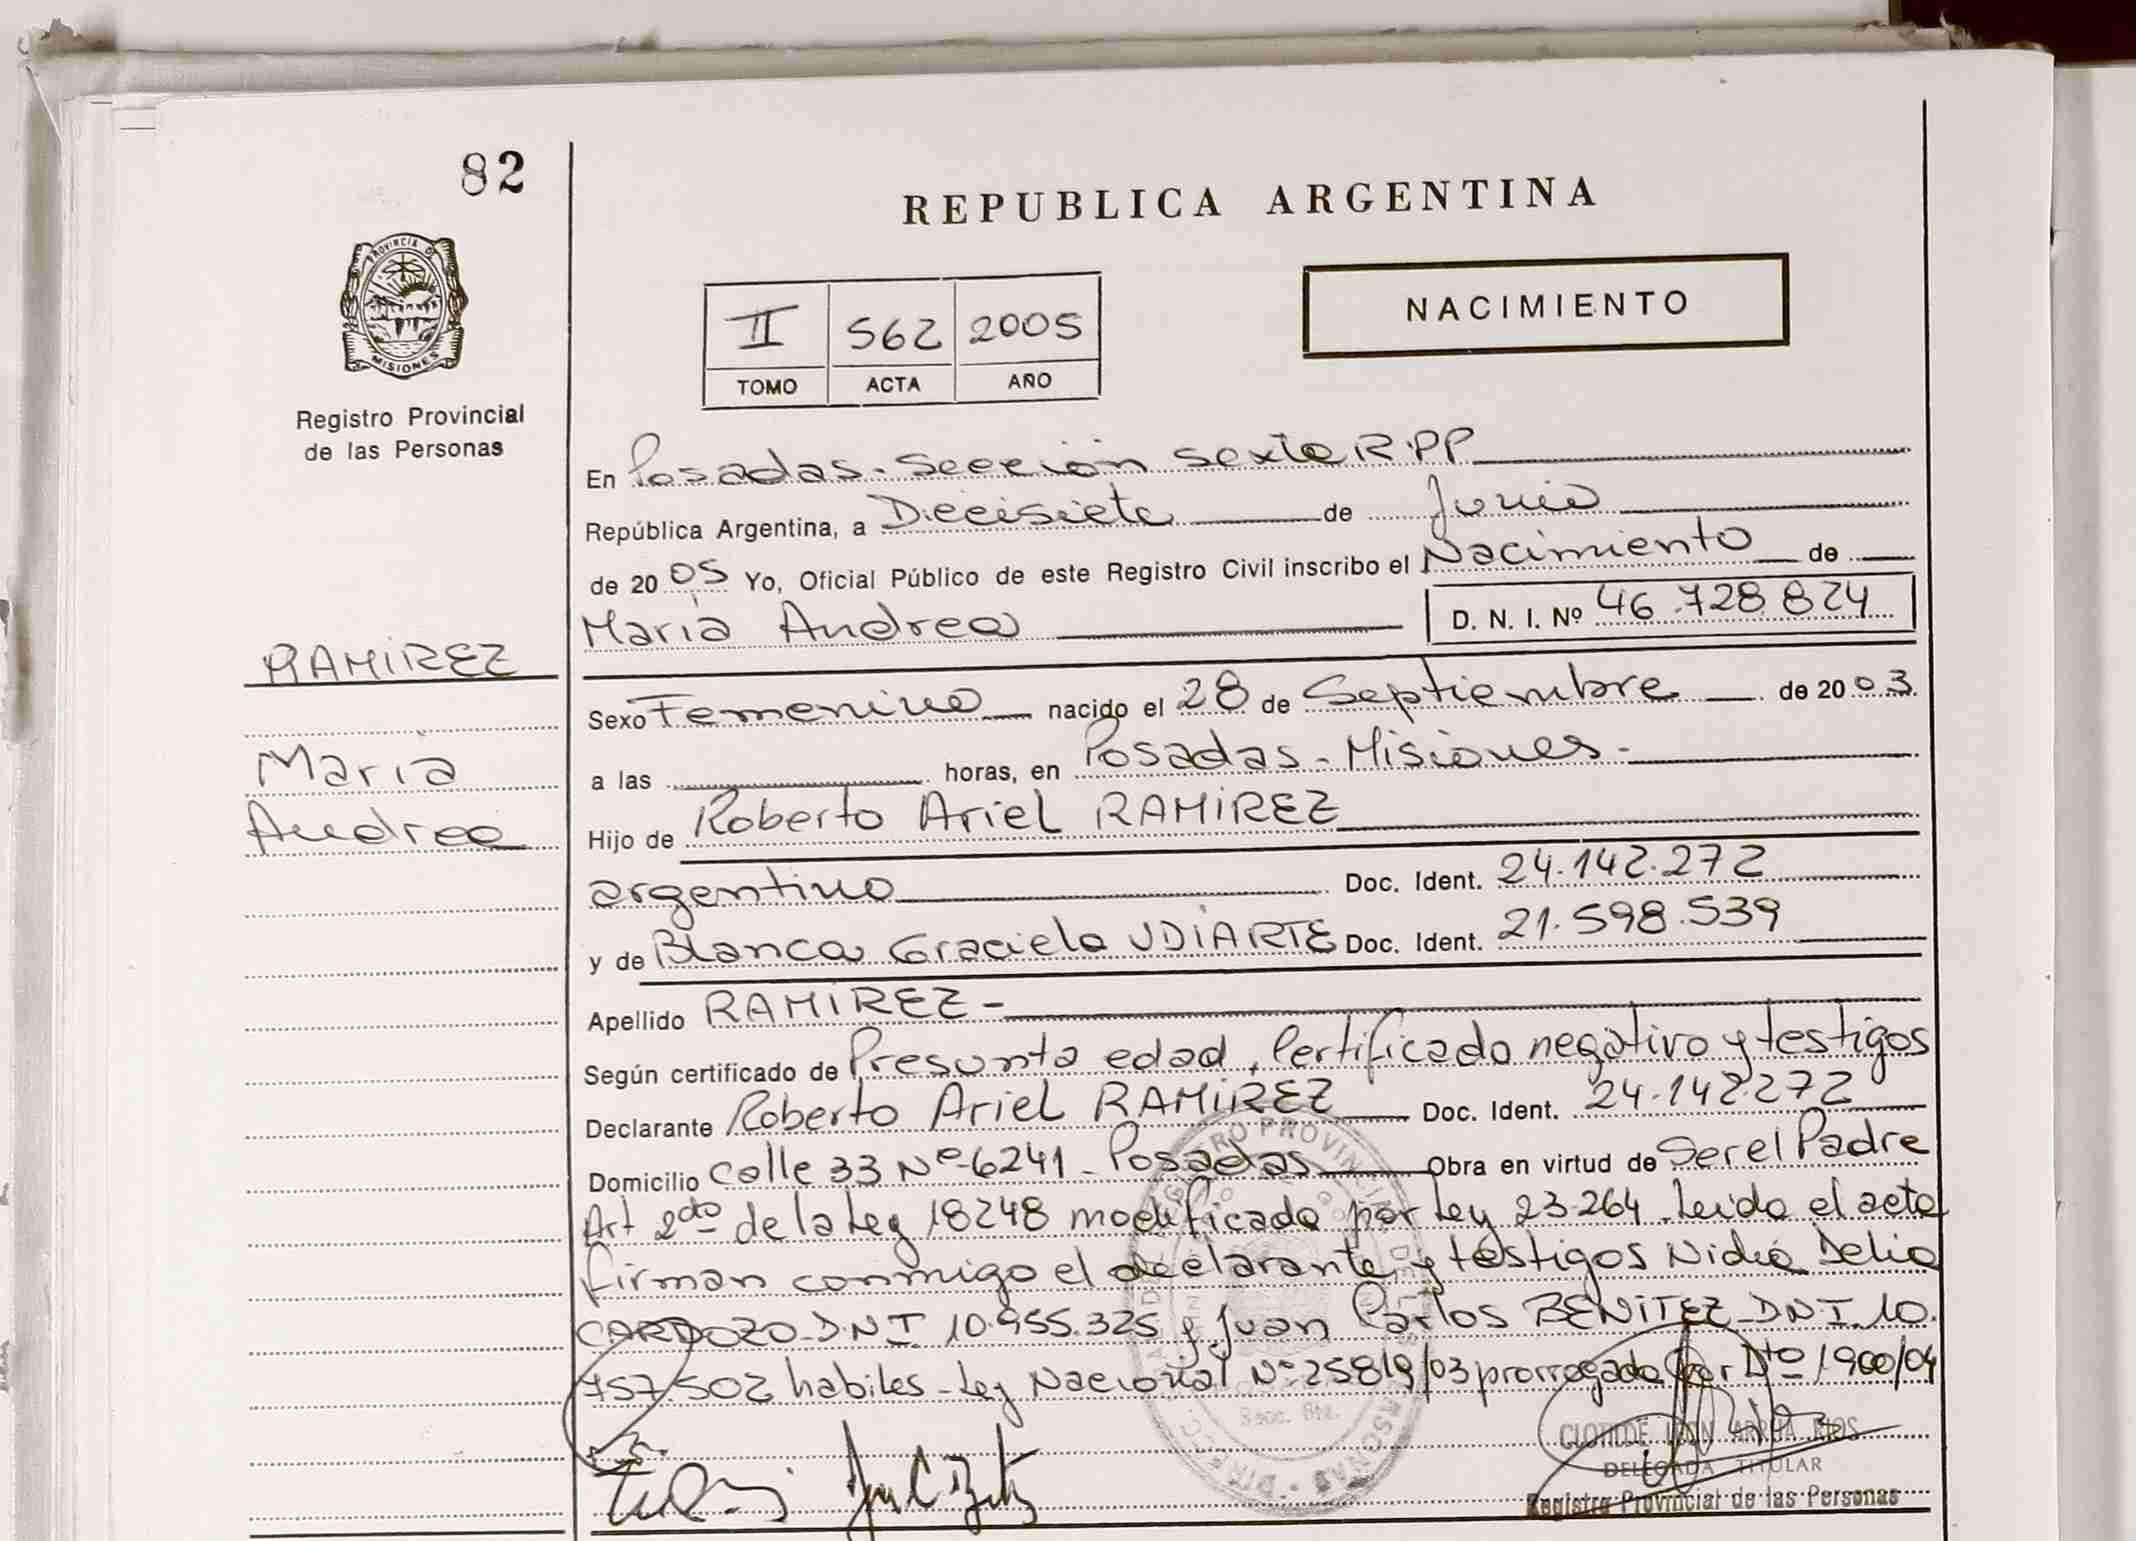 82
REPUBLICA ARGENTINA
PROVINCIA DE
MISIONES
NACIMIENTO
II 562 2005
TOMO ACTA AÑO
Registro Provincial
de las Personas
En Posadas. Sección Sexta R.PP
República Argentina, a Diecisiete de Junio
de 2005 Yo, Oficial Público de este Registro Civil inscribo el Nacimiento de
María Andrea D. N. I. Nº 46.728.824
RAMIREZ
Sexo Femenino nacido el 28 de Septiembre de 2003.
María
a las horas, en Posadas - Misiones -
Andrea
Hijo de Roberto Ariel RAMIREZ
argentino Doc. Ident. 24.142.272
y de Blanca Graciela UDIARTE Doc. Ident. 21.598.539
Apellido RAMIREZ -
Según certificado de Presunta edad, Certificado negativo y testigos
Declarante Roberto Ariel RAMIREZ Doc. Ident. 24.142.272
Domicilio Calle 33 Nº 6241 - Posadas Obra en virtud de Ser el Padre
Art 2do de la Ley 18248 modificado por Ley 23.264. Leida el acta
firman conmigo el declarante y testigos Nidia Delia
CARDOZO D.N.I. 10.955.325 y Juan Carlos BENITEZ D.N.I. 10.
757.502 habiles - Ley Nacional Nº 25819/03 prorrogada por Dto 1900/04
Secc. 6ta.
CLOTILDE RIOS
DELEGADA TITULAR
Registro Provincial de las Personas